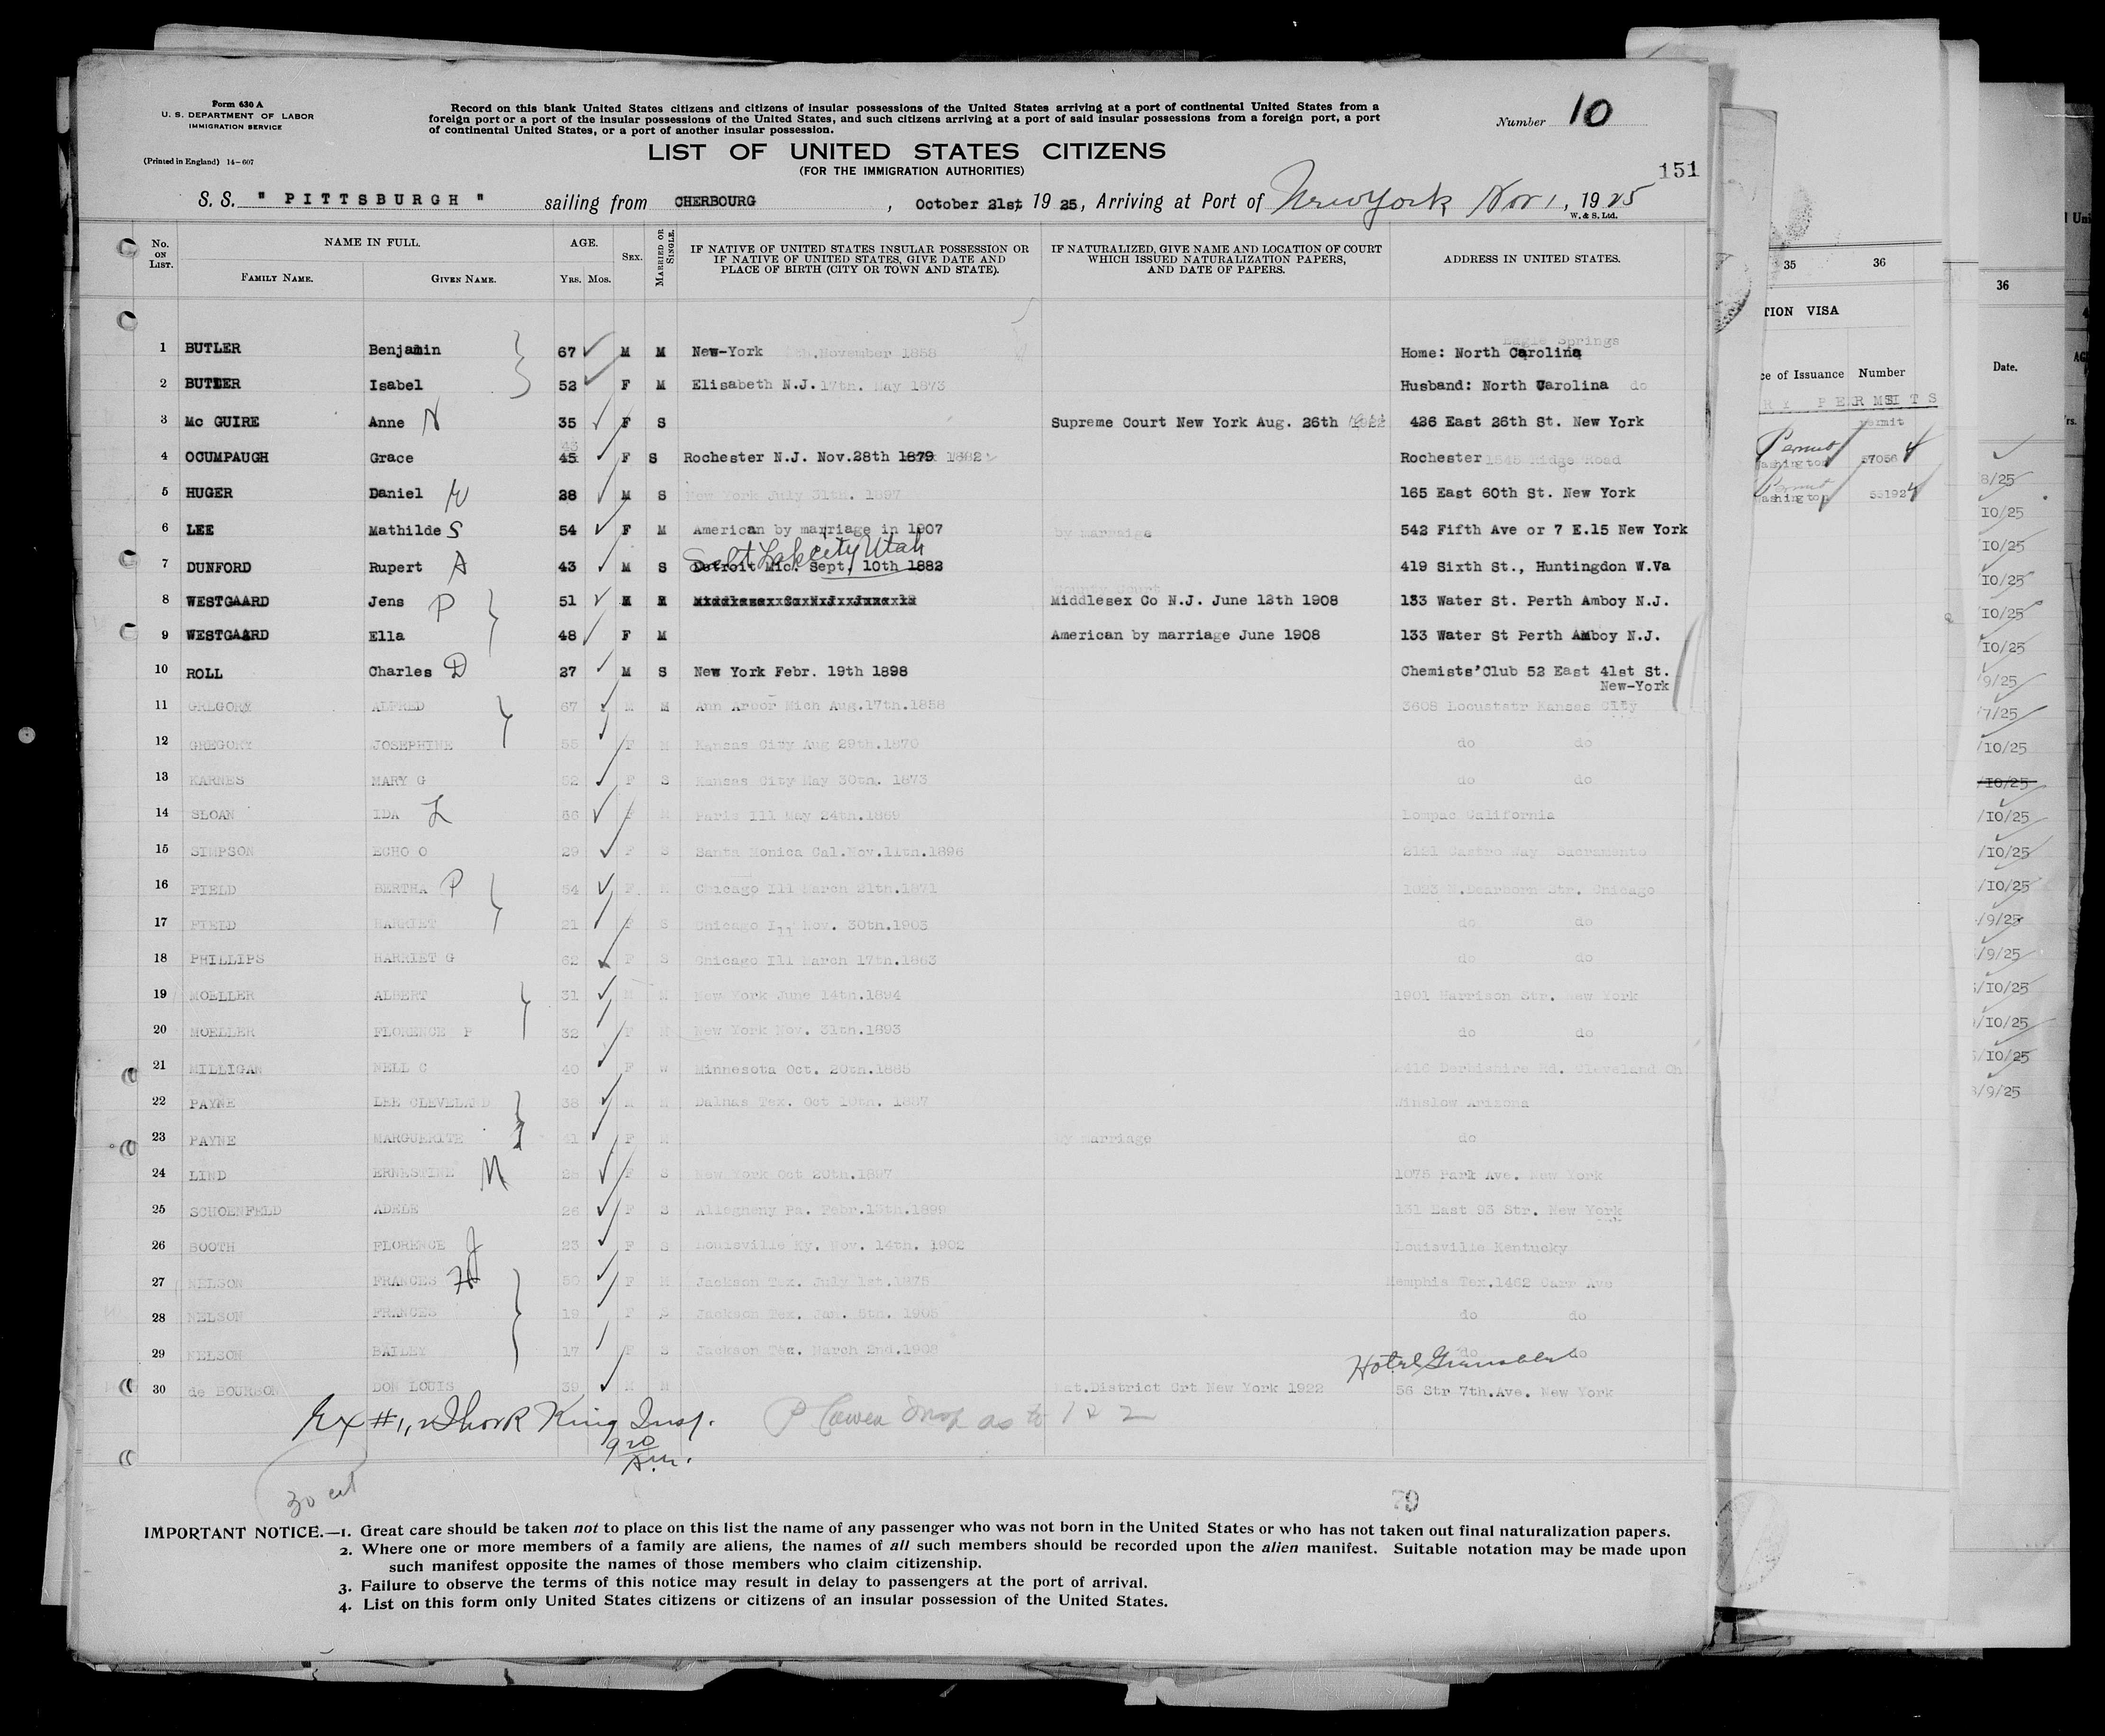 Form 630 A
U. S. DEPARTMENT OF LABOR
IMMIGRATION SERVICE
(Printed in England) 14-607
Record on this blank United States citizens and citizens of insular possessions of the United States arriving at a port of continental United States from a
foreign port or a port of the insular possessions of the United States, and such citizens arriving at a port of said insular possessions from a foreign port, a port
of continental United States, or a port of another insular possession.
Number 10
LIST OF UNITED STATES CITIZENS
(FOR THE IMMIGRATION AUTHORITIES)
151
S. S. " PITTSBURGH " sailing from CHERBOURG , October 21st 1925, Arriving at Port of New York Nov 1, 1925
W. & S. Ltd.
No. ON LIST. NAME IN FULL. FAMILY NAME. GIVEN NAME. AGE. Yrs. Mos. SEX. MARRIED OR SINGLE. IF NATIVE OF UNITED STATES INSULAR POSSESSION OR IF NATIVE OF UNITED STATES, GIVE DATE AND PLACE OF BIRTH (CITY OR TOWN AND STATE). IF NATURALIZED, GIVE NAME AND LOCATION OF COURT WHICH ISSUED NATURALIZATION PAPERS, AND DATE OF PAPERS. ADDRESS IN UNITED STATES.
Eagle Springs
1 BUTLER Benjamin 67 M M New-York November 1858 Home: North Carolina
2 BUTLER Isabel 52 F M Elisabeth N.J. 17th. May 1873 Husband: North Carolina do
3 Mc GUIRE Anne N 35 F S Supreme Court New York Aug. 26th 1922 426 East 26th St. New York
43
4 OCUMPAUGH Grace 45 F S Rochester N.J. Nov.28th 1879 1882 Rochester 1545 Ridge Road
5 HUGER Daniel W 28 M S New York July 31th. 1897 165 East 60th St. New York
6 LEE Mathilde S 54 F M American by marriage in 1907 by marraige 542 Fifth Ave or 7 E.15 New York
Salt Lake city Utah
7 DUNFORD Rupert A 43 M S Detroit Mic. Sept. 10th 1882 419 Sixth St., Huntingdon W.Va
County Court
8 WESTGAARD Jens P 51 M M Middlesex Co N.J. June 12th 1908 133 Water St. Perth Amboy N.J.
9 WESTGAARD Ella 48 F M American by marriage June 1908 133 Water St Perth Amboy N.J.
10 ROLL Charles D 27 M S New York Febr. 19th 1898 Chemists'Club 52 East 41st St.
New-York
11 GREGORY ALFRED 67 M M Ann Aroor Mich Aug.17th.1858 3608 Locuststr Kansas City
12 GREGORY JOSEPHINE 55 F M Kansas City Aug 29th.1870 do do
13 KARNES MARY G 52 F S Kansas City May 30th. 1873 do do
14 SLOAN IDA L 56 F M Paris Ill May 24th.1869 Lompac California
15 SIMPSON ECHO O 29 F S Santa Monica Cal.Nov.11th.1896 2121 Castro Way Sacramento
16 FIELD BERTHA P 54 F M Chicago Ill March 21th.1871 1023 N.Dearborn Str. Chicago
17 FIELD HARRIET 21 F S Chicago Ill Nov. 30th.1903 do do
18 PHILLIPS HARRIET G 62 F S Chicago Ill March 17th.1863 do do
19 MOELLER ALBERT 31 M M New York June 14th.1894 1901 Harrison Str. New York
20 MOELLER FLORENCE P 32 F M New York Nov. 31th.1893 do do
21 MILLIGAN NELL C 40 F W Minnesota Oct. 20th.1885 2416 Derbishire Rd. Cleveland Oh
22 PAYNE LEE CLEVELAND 38 M M Dalhas Tex. Oct 19th. 1887 Winslow Arizona
23 PAYNE MARGUERITE 41 F M by marriage do
24 LIND ERNESTINE M 28 F S New York Oct 20th.1897 1075 Park Ave. New York
25 SCHOENFELD ADELE 26 F S Allegheny Pa. Febr.13th.1899 131 East 93 Str. New York
26 BOOTH FLORENCE J 23 F S Louisville Ky. Nov. 14th. 1902 Louisville Kentucky
27 NELSON FRANCES 50 F M Jackson Tex. July 1st.1875 Memphis Tex.1462 Carr Ave
28 NELSON FRANCES 19 F S Jackson Tex. Jan. 6th. 1906 do do
29 NELSON BAILEY 17 F S Jackson Tex. March 2nd.1908 do do
Hotel
30 de BOURBON DON LOUIS 39 M M Nat.District Crt New York 1922 56 Str 7th.Ave. New York
Ex #1, King Insp. Insp as to 1 & 2
9 20
A.m.
30 cit
79
IMPORTANT NOTICE.—1. Great care should be taken not to place on this list the name of any passenger who was not born in the United States or who has not taken out final naturalization papers.
2. Where one or more members of a family are aliens, the names of all such members should be recorded upon the alien manifest. Suitable notation may be made upon
such manifest opposite the names of those members who claim citizenship.
3. Failure to observe the terms of this notice may result in delay to passengers at the port of arrival.
4. List on this form only United States citizens or citizens of an insular possession of the United States.
35 36
TION VISA
ce of Issuance Number
RY PERMITS
permit
Permit
ashington 57056
Permit
ashington 55192
36
Date.
8/25
10/25
10/25
10/25
10/25
10/25
9/25
7/25
/10/25
/10/25
/10/25
/10/25
/10/25
/9/25
/9/25
/10/25
/10/25
/10/25
/9/25